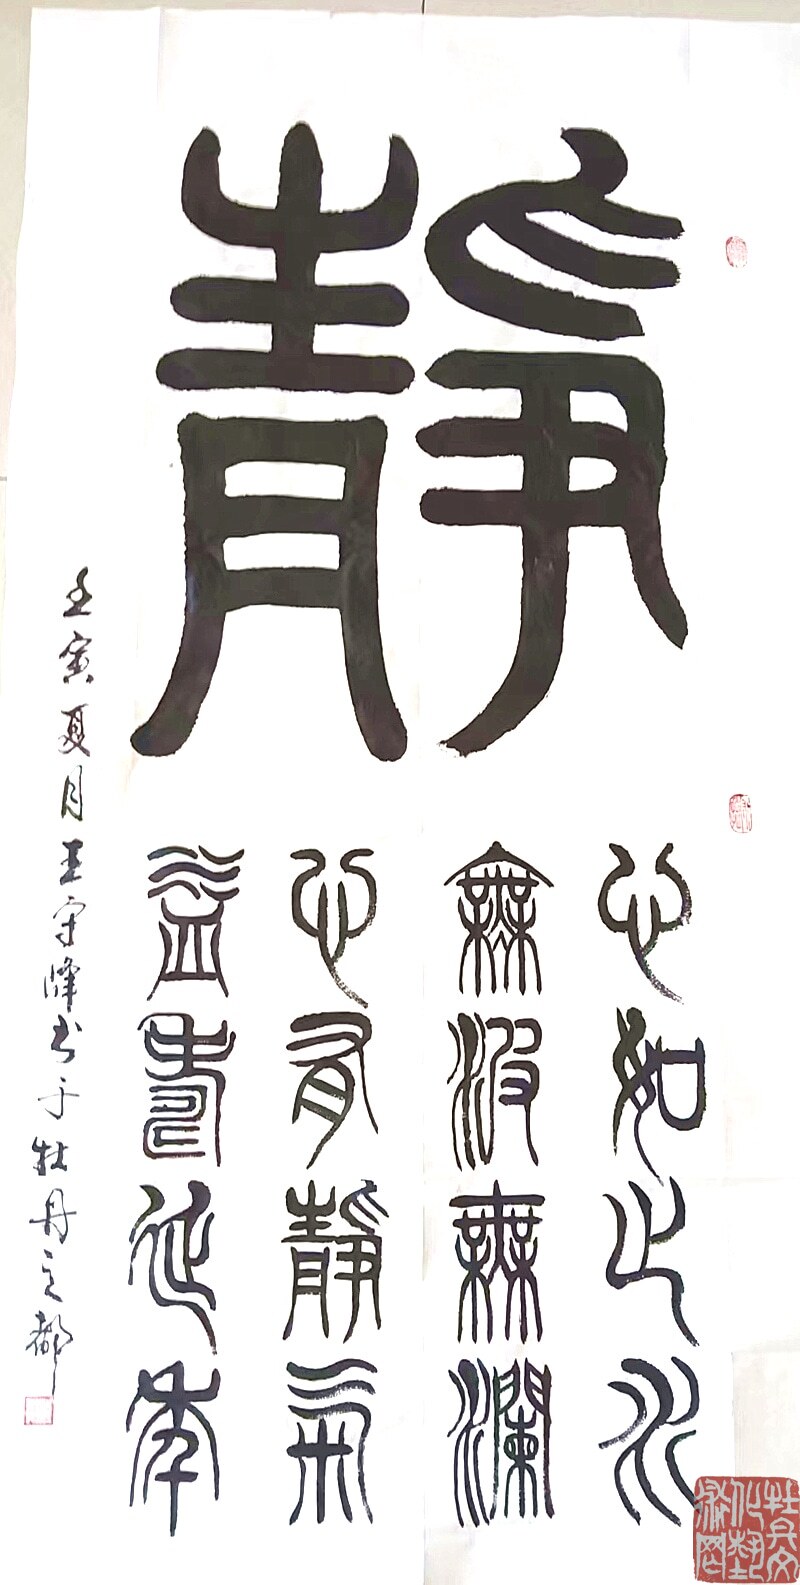 靜
心如止水
無波無瀾
心有靜氣
益壽延年
壬寅夏月王守峰书于牡丹之都